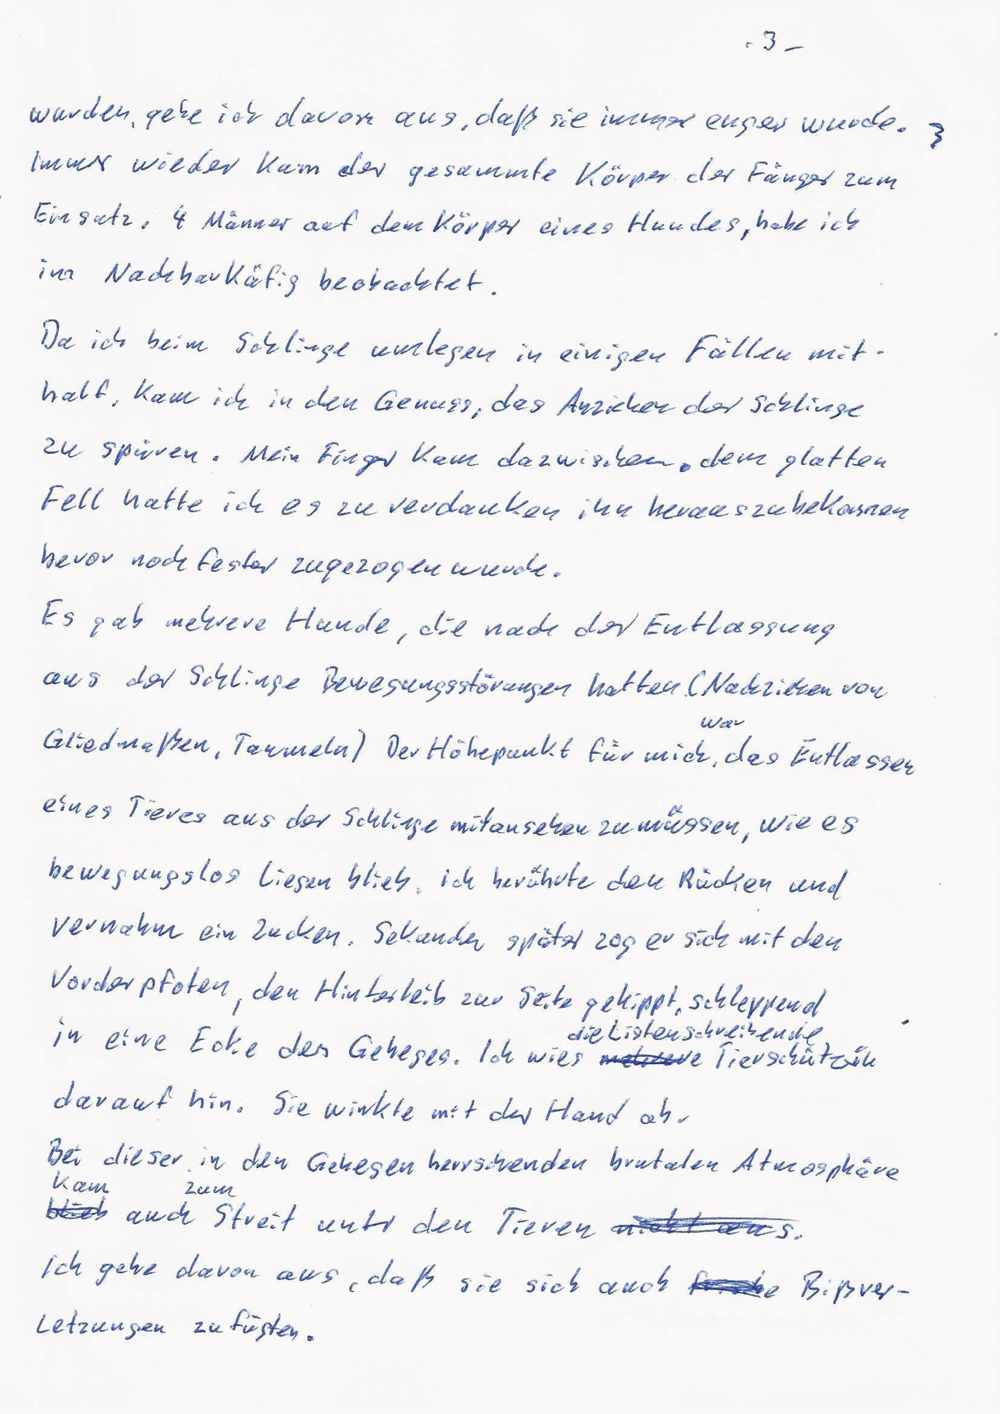 - 3 -
wurden, gehe ich davon aus, daß sie immer enger wurde. 3
Immer wieder kam der gesammte Körper der Fänger zum
Einsatz. 4 Männer auf dem Körper eines Hundes, habe ich
im Nachbarkäfig beobachtet.
Da ich beim Schlinge umlegen in einigen Fällen mit-
half, kam ich in den Genuss, das Anziehen der Schlinge
zu spüren. Mein Finger kam dazwischen, dem glatten
Fell hatte ich es zu verdanken ihn herauszubekommen
bevor noch fester zugezogen wurde.
Es gab mehrere Hunde, die nach der Entlassung
aus der Schlinge Bewegungsstörungen hatten (Nachziehen von
war
Gliedmaßen, Tammeln) Der Höhepunkt für mich, das Entlassen
eines Tieres aus der Schlinge mitansehen zu müssen, wie es
bewegungslos liegen blieb. ich berührte den Rücken und
vernahm ein Zucken. Sekunden später zog er sich mit den
Vorderpfoten, den Hinterleib zur Seite gekippt, schleppend
die Listenschreibende
in eine Ecke des Geheges. Ich wies mehrere Tierschützerin
darauf hin. Sie winkte mit der Hand ab.
Bei dieser in den Gehegen herrschenden brutalen Atmosphäre
kam zum
blieb auch Streit untr den Tieren nicht aus.
Ich gehe davon aus, daß sie sich auch Bißver-
letzungen zufügten.